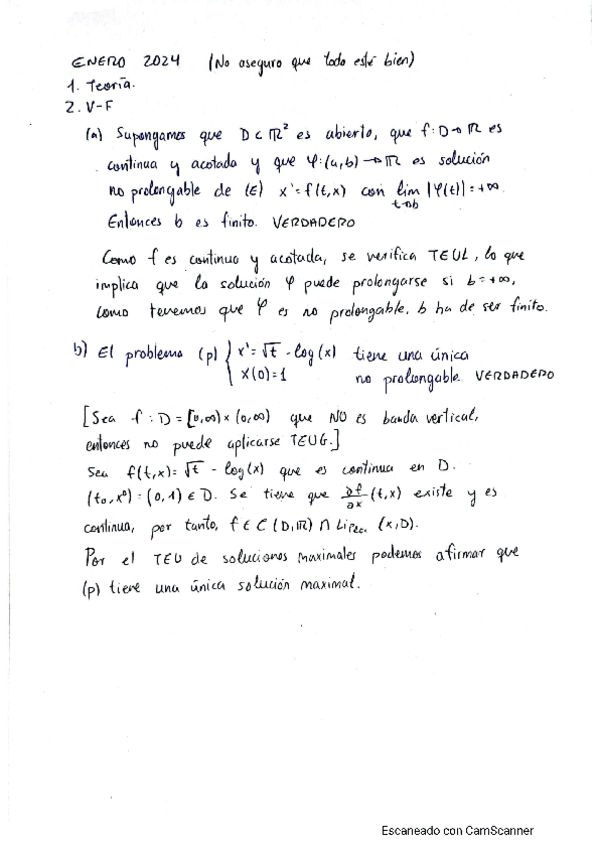 ENERO 2024 (No aseguro que todo esté bien)
1. Teoría.
2. V-F
(a) Supongamos que D ⊂ ℝ² es abierto, que f: D→ℝ es
continua y acotada y que φ: (a,b) → ℝ es solución
no prolongable de (E) x' = f(t,x) con lim_{t→b} |φ(t)| = +∞
Entonces b es finito. VERDADERO
Como f es continua y acotada, se verifica TEUL, lo que
implica que la solución φ puede prolongarse si b=+∞,
como tenemos que φ es no prolongable, b ha de ser finito.
b) El problema (p) { x' = √t - log(x) tiene una única
x(0)=1 no prolongable. VERDADERO
[Sea f: D = [0,∞) × (0,∞) que NO es banda vertical,
entonces no puede aplicarse TEUG.]
Sea f(t,x) = √t - log(x) que es continua en D.
(t₀, x⁰) = (0,1) ∈ D. Se tiene que ∂f/∂x (t,x) existe y es
continua, por tanto, f ∈ C(D,ℝ) ∩ Lip_{loc.} (x,D).
Por el TEU de soluciones maximales podemos afirmar que
(p) tiene una única solución maximal.
Escaneado con CamScanner